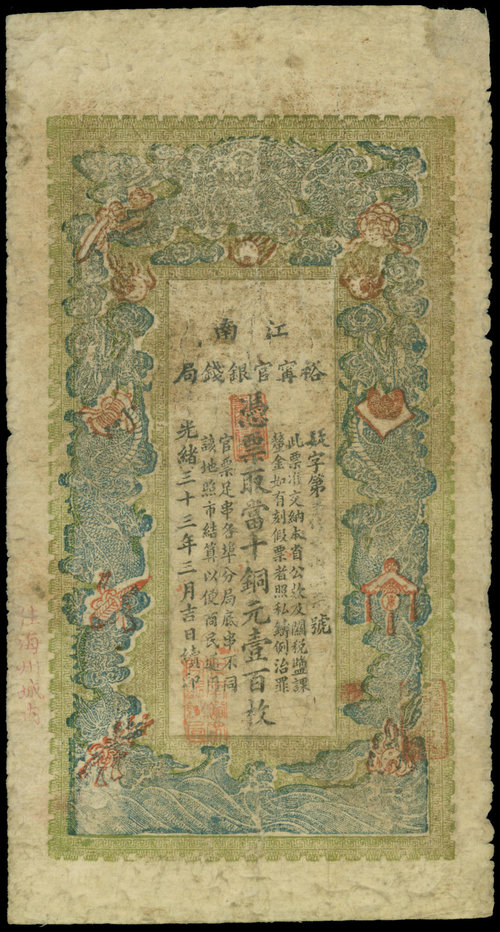 江南
裕甯官銀錢局
字第號
此票准交納本省公款及關稅鹽課
釐金如有刻假票者照私鑄例治罪
憑票取當十銅元壹百枚
官票足串各埠分局底串不同
該地照市結算以便商民通用
光緒三十三年三月吉日續印